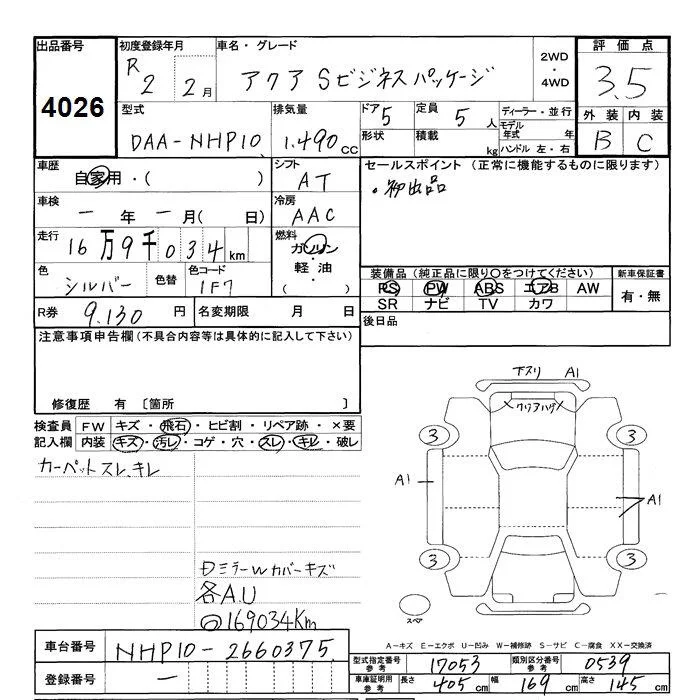 出品番号 4026
初度登録年月 R 2 2月
車名・グレード アクア Sビジネスパッケージ
2WD・4WD
評価点 3.5
外装 B 内装 C
型式 DAA-NHP10
排気量 1.490 CC
ドア 5 定員 5 人
形状 積載 kg
ディーラー・並行
モデル年式 年
ハンドル 左・右
車歴 自家用・( )
シフト AT
セールスポイント (正常に機能するものに限ります)
・初出品
車検 ー 年 ー 月( 日)
冷房 AAC
走行 16万9千034km
燃料 ガソリン・軽油・( )
色 シルバー 色替 色コード 1F7
装備品(純正品に限り○をつけてください) 新車保証書
PS PW ABS エアB AW 有・無
SR ナビ TV カワ
R券 9.130 円 名変期限 月 日
後日品
注意事項申告欄(不具合内容等は具体的に記入して下さい)
修復歴 有 〔箇所 〕
検査員記入欄
FW キズ・飛石・ヒビ割・リペア跡・×要
内装 キズ・汚レ・コゲ・穴・スレ・キレ・破レ
カーペットスレ、キレ
下スリ A1
クリアハゲ
3 3
A1 A1
3 3
スペア
ミラーWカバーキズ
各A.U
◎169034Km
A-キズ E-エクボ U-凹み W-補修跡 S-サビ C-腐食 XX-交換済
車台番号 NHP10-2660375
登録番号 ー
型式指定番号 参考 17053 類別区分番号 参考 0539
車庫証明用 参考 長さ 405cm 幅 169cm 高さ 145cm